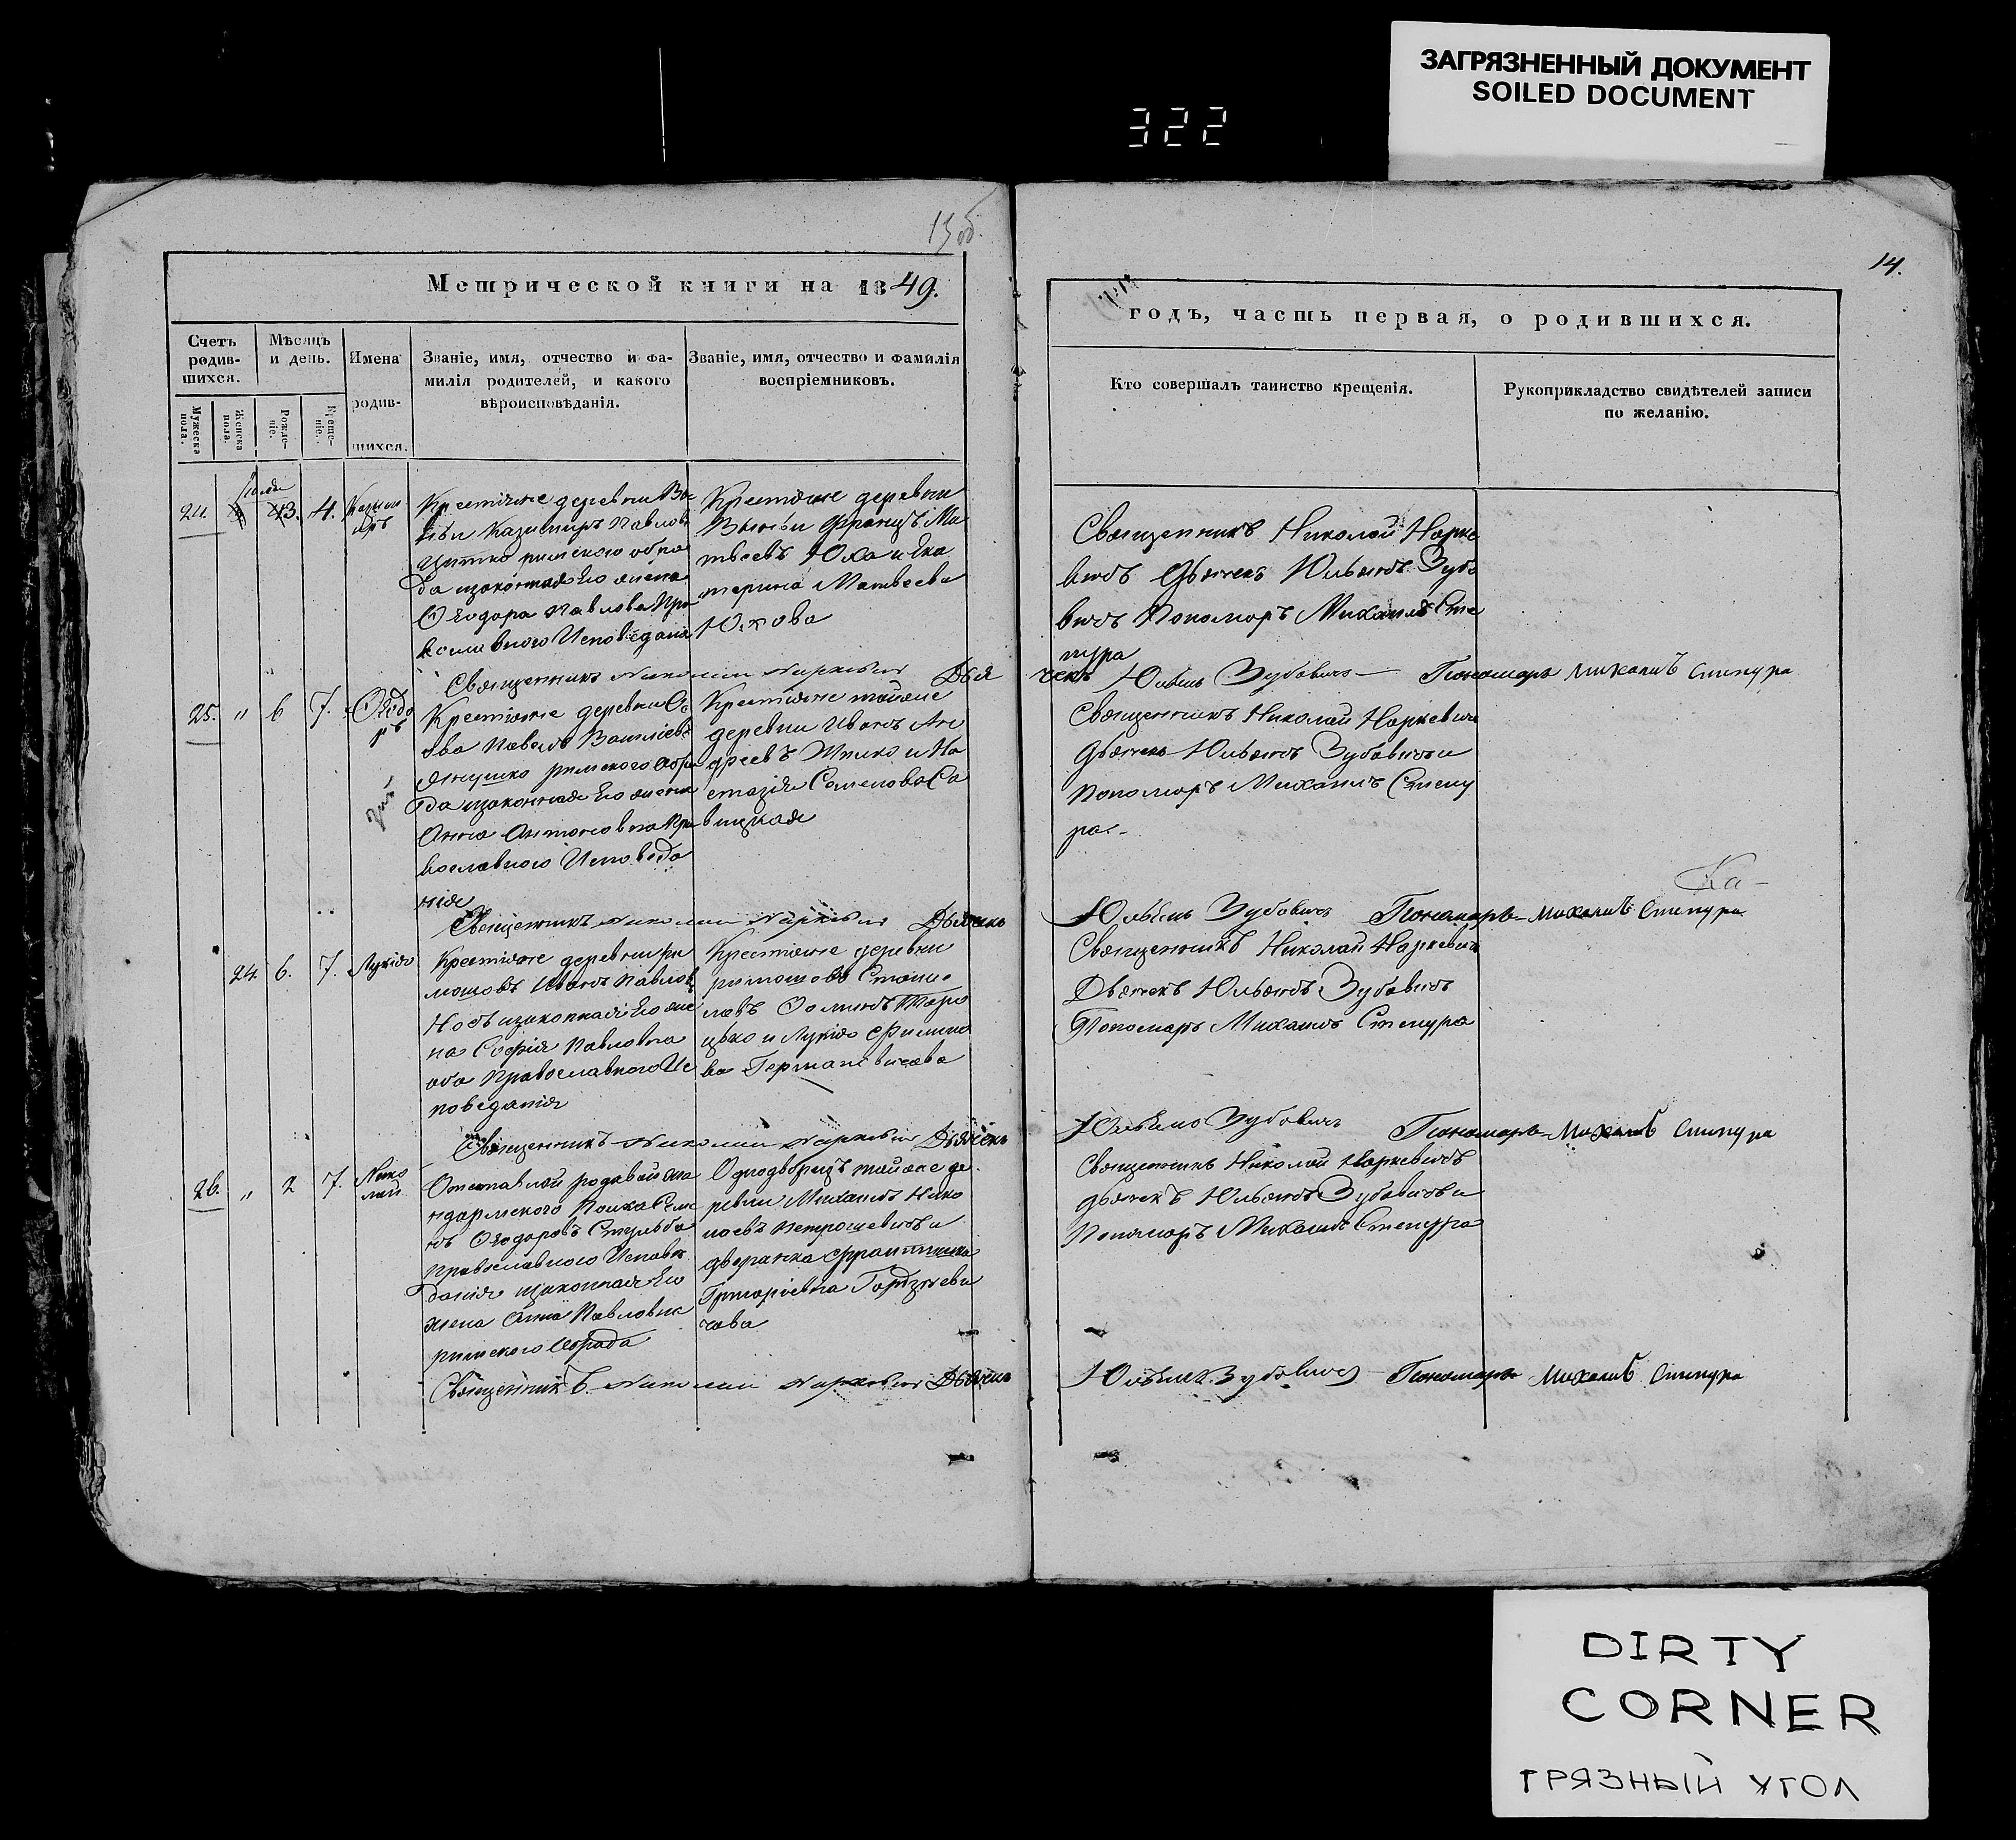 ЗАГРЯЗНЕННЫЙ ДОКУМЕНТ
SOILED DOCUMENT
322
13 об.
14.
Метрической книги на 1849.
годъ, часть первая, о родившихся.
Счетъ родив-шихся.
Мужеска пола.
Женска пола.
Мѣсяцъ и день.
Рожде-нiе.
Креще-нiе.
Имена родив-шихся.
Званiе, имя, отчество и фа-
милiя родителей, и какого
вѣроисповѣданiя.
Званiе, имя, отчество и фамилiя
воспрiемниковъ.
Кто совершалъ таинство крещенiя.
Рукоприкладство свидѣтелей записи
по желанiю.
24. 4.
Казими
iръ
Крестiяне деревни
Казимиръ Павловъ
римского обря
да изаконная Его жена
Ѳеодора Павлова Пра
вославного Исповѣданiя
Крестiяне деревни
Францъ Ма
твеевъ Юха и Ека
терина Матвеева
Юхова
Священникъ Николай Нарке
вичъ Дьячекъ Юльянъ Зубо
вичъ Пономаръ Михаилъ Сте
пура
Священникъ Николай Наркевич Дья
чекъ Зубовичъ Пономаръ Михаилъ Степура
25. " 6 7.
Ѳеодо
ръ
Крестiяне деревни
Павелъ Василiевъ
римского обря
да изаконная Его жена
Анна Антоновна Пра
вославного Исповеда
нiя
Крестiяне тойже
деревни Иванъ Ан
дреевъ и На
стазiя Семенова Са
вицкая
Священникъ Николай Наркевичъ
Дьячекъ Юльянъ Зубовичъ и
Пономаръ Михаилъ Степу
ра.
Священникъ Николай Наркевич Дьячекъ
Зубовичъ Пономаръ Михаилъ Степура
24 6. 7.
Лукiя
Крестiяне деревни Ри
мошовъ Иванъ Павловъ
Носъ изаконная Его же
на Софiя Павловна
оба Православного Ис
поведанiя
Крестiяне деревни
Римошовъ Стани
славъ
и Лукiя Филипо
ва Германовичова
Священникъ Николай Наркевичъ
Дьячекъ Юльянъ Зубовичъ
Пономаръ Михаилъ Степура
Священникъ Николай Наркевич Дьячекъ
Зубовичъ Пономаръ Михаилъ Степура
26. " 2 7.
Нико
лай
Отставной рядовой жа
ндармского Полка
Ѳеодоровъ
православного Исповѣ
данiя изаконная Его
жена Анна Павловна
римского обряда
Однодворецъ тойже де
ревни Михаилъ Нико
лаевъ Петрошевичъ и
дворянка Францишка
Григорiевна
Священникъ Николай Наркевичъ
Дьячекъ Юльянъ Зубовичъ и
Пономаръ Михаилъ Степура
Священникъ Николай Наркевич Дьячекъ
Зубовичъ Пономаръ Михаилъ Степура
DIRTY
CORNER
ГРЯЗНЫЙ УГОЛ